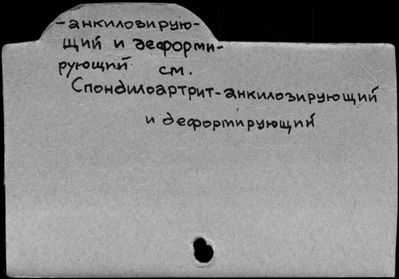 -анкилозирую-
щий и деформи-
рующий см.
Спондилоартрит-анкилозирующий
и деформирующий